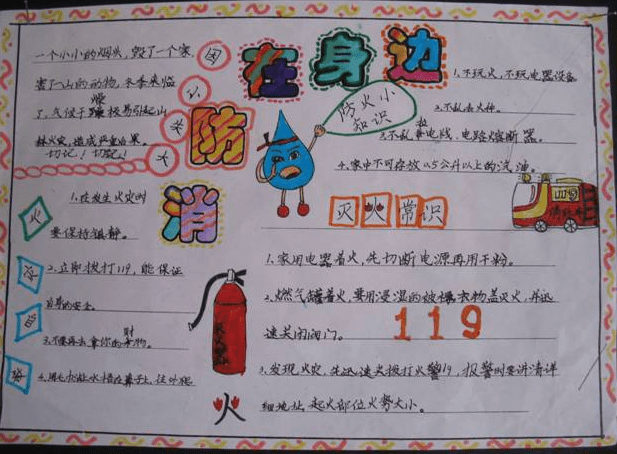 消防在身边
一个小小的烟头,毁了一个家,
害了一山的动物,冬季来临
了,气候干燥极易引起山
林火灾,造成严重后果。
切记!切记!
防火小
知识
1.不玩火,不玩电器设备
2.不乱丢火种。
3.不乱私电线、电路熔断器。
4.家中不可存放0.5公升以上的汽油。
火
1.在发生火灾时
要保持镇静。
2.立即拨打119,能保证
自身的安全。
3.不要再去拿你的财物。
灭火常识
1.家用电器着火,先切断电源再用干粉。
2.燃气罐着火,要用浸湿的被褥衣物盖灭火,并迅
速关闭阀门。
119
3.发现火灾,先迅速火拨打火警119,报警时要讲清详
细地址、起火部位火势大小。
火